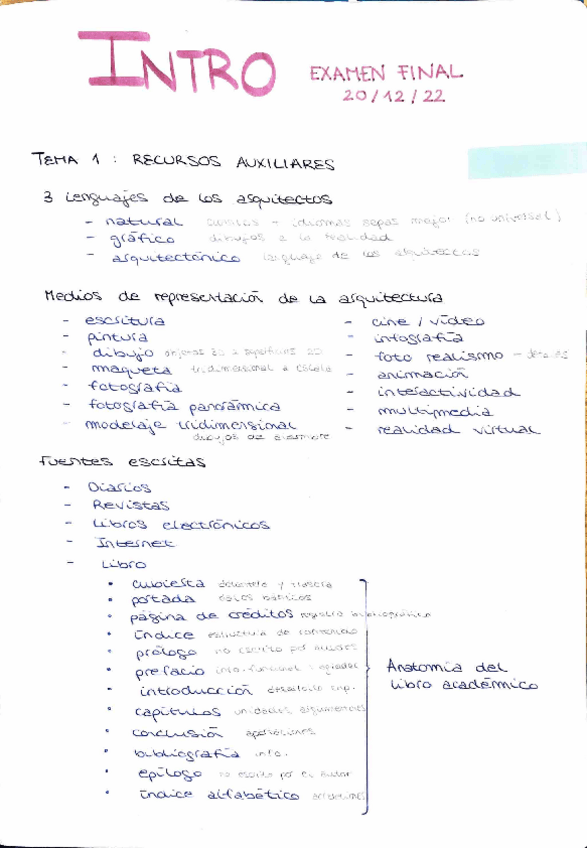 INTRO
EXAMEN FINAL
20/12/22
TEMA 1 : RECURSOS AUXILIARES
3 lenguajes de los arquitectos
- natural idiomas sepas mejor (no universal)
- gráfico dibujos a la realidad
- arquitectónico lenguaje de los arquitectos
Medios de representación de la arquitectura
- escritura
- pintura
- dibujo objetos 3D a superficies 2D
- maqueta tridimensional a escala
- fotografía
- fotografía panorámica
- modelaje tridimensional
dibujos de alambre
- cine / vídeo
- infografía
- foto realismo - detalles
- animación
- interactividad
- multimedia
- realidad virtual
Fuentes escritas
- Diarios
- Revistas
- Libros electrónicos
- Internet
- Libro
• cubierta delantera y trasera
• portada datos básicos
• página de créditos registro bibliográfico
• índice estructura de contenido
• prólogo no escrito por autores
• prefacio info. funcional
• introducción desarrollo imp.
• capítulos unidades argumentales
• conclusión aportaciones
• bibliografía info.
• epílogo no escrito por el autor
• índice alfabético
Anatomía del
libro académico